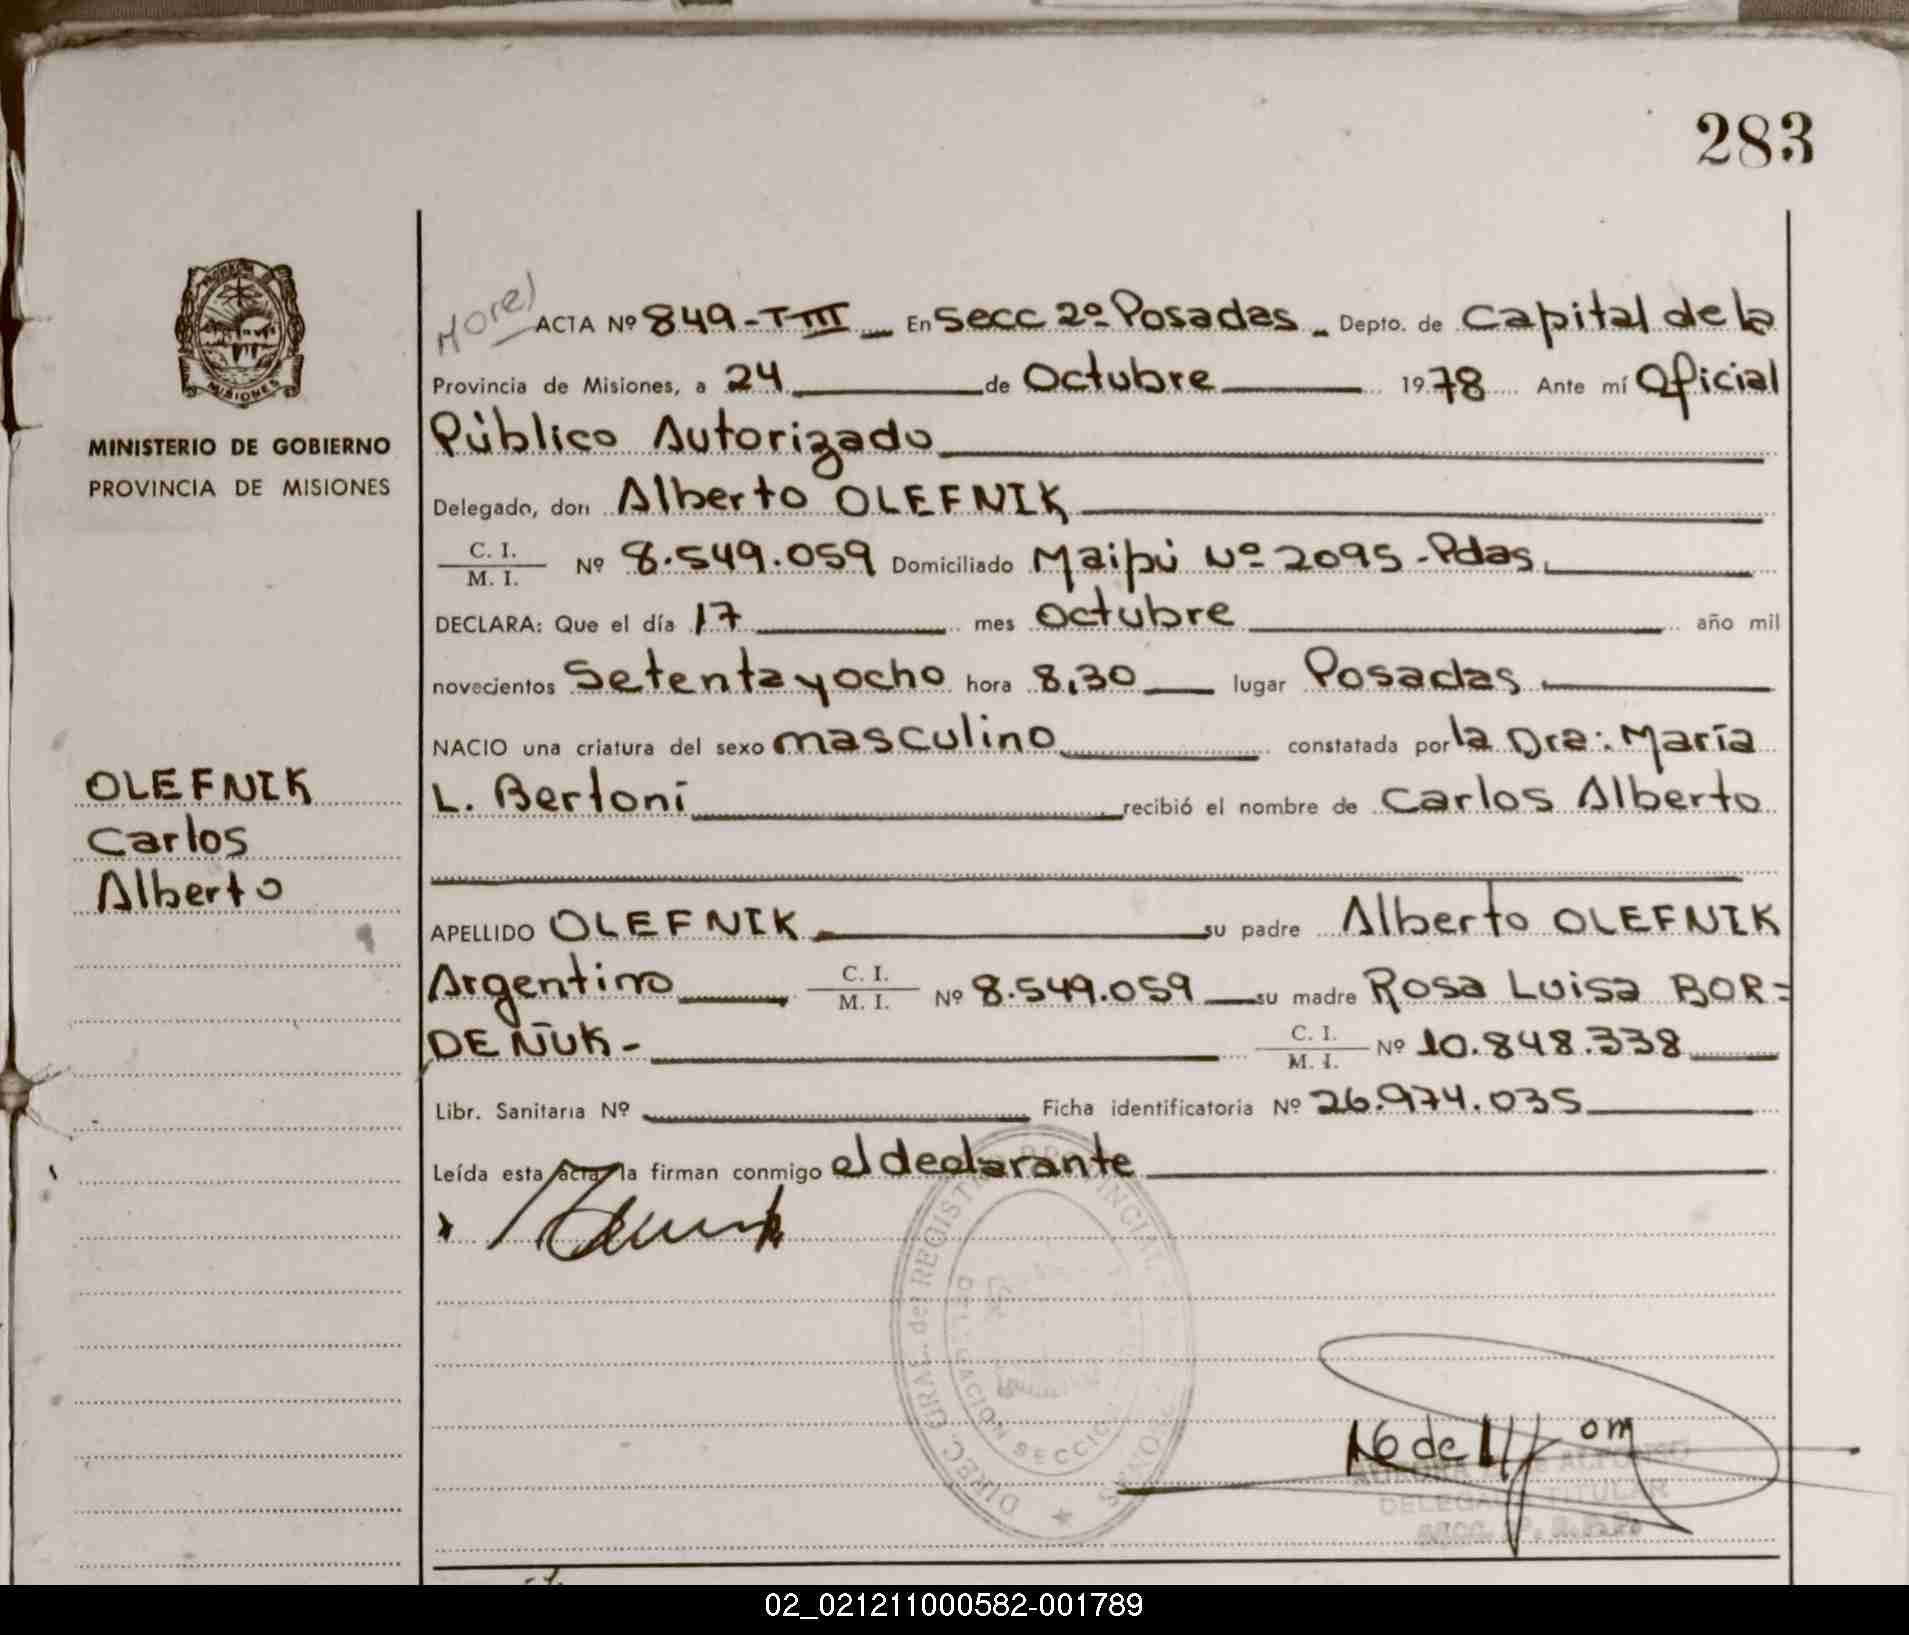 283
Morel
ACTA Nº 849-TIII En Secc 2º Posadas Depto. de Capital de la
Provincia de Misiones, a 24 de Octubre 1978 Ante mí Oficial
Público Autorizado
Delegado, don Alberto OLEFNIK
C. I.
M. I. Nº 8.549.059 Domiciliado Maipú Nº 2095-Pdas.
DECLARA: Que el día 17 mes octubre año mil
novecientos Setenta y ocho hora 8,30 lugar Posadas
NACIO una criatura del sexo masculino constatada por la Dra: María
L. Bertoni recibió el nombre de Carlos Alberto
APELLIDO OLEFNIK su padre Alberto OLEFNIK
Argentino C. I.
M. I. Nº 8.549.059 su madre Rosa Luisa BOR=
DEÑUK- C. I.
M. I. Nº 10.848.338
Libr. Sanitaria Nº Ficha identificatoria Nº 26.974.035
Leída esta acta la firman conmigo el declarante
MINISTERIO DE GOBIERNO
PROVINCIA DE MISIONES
OLEFNIK
Carlos
Alberto
MISIONES
DIREC. GRAL. del REGISTRO PROVINCIAL
SECCION
ALFONSO
DELEGADA TITULAR
02_021211000582-001789